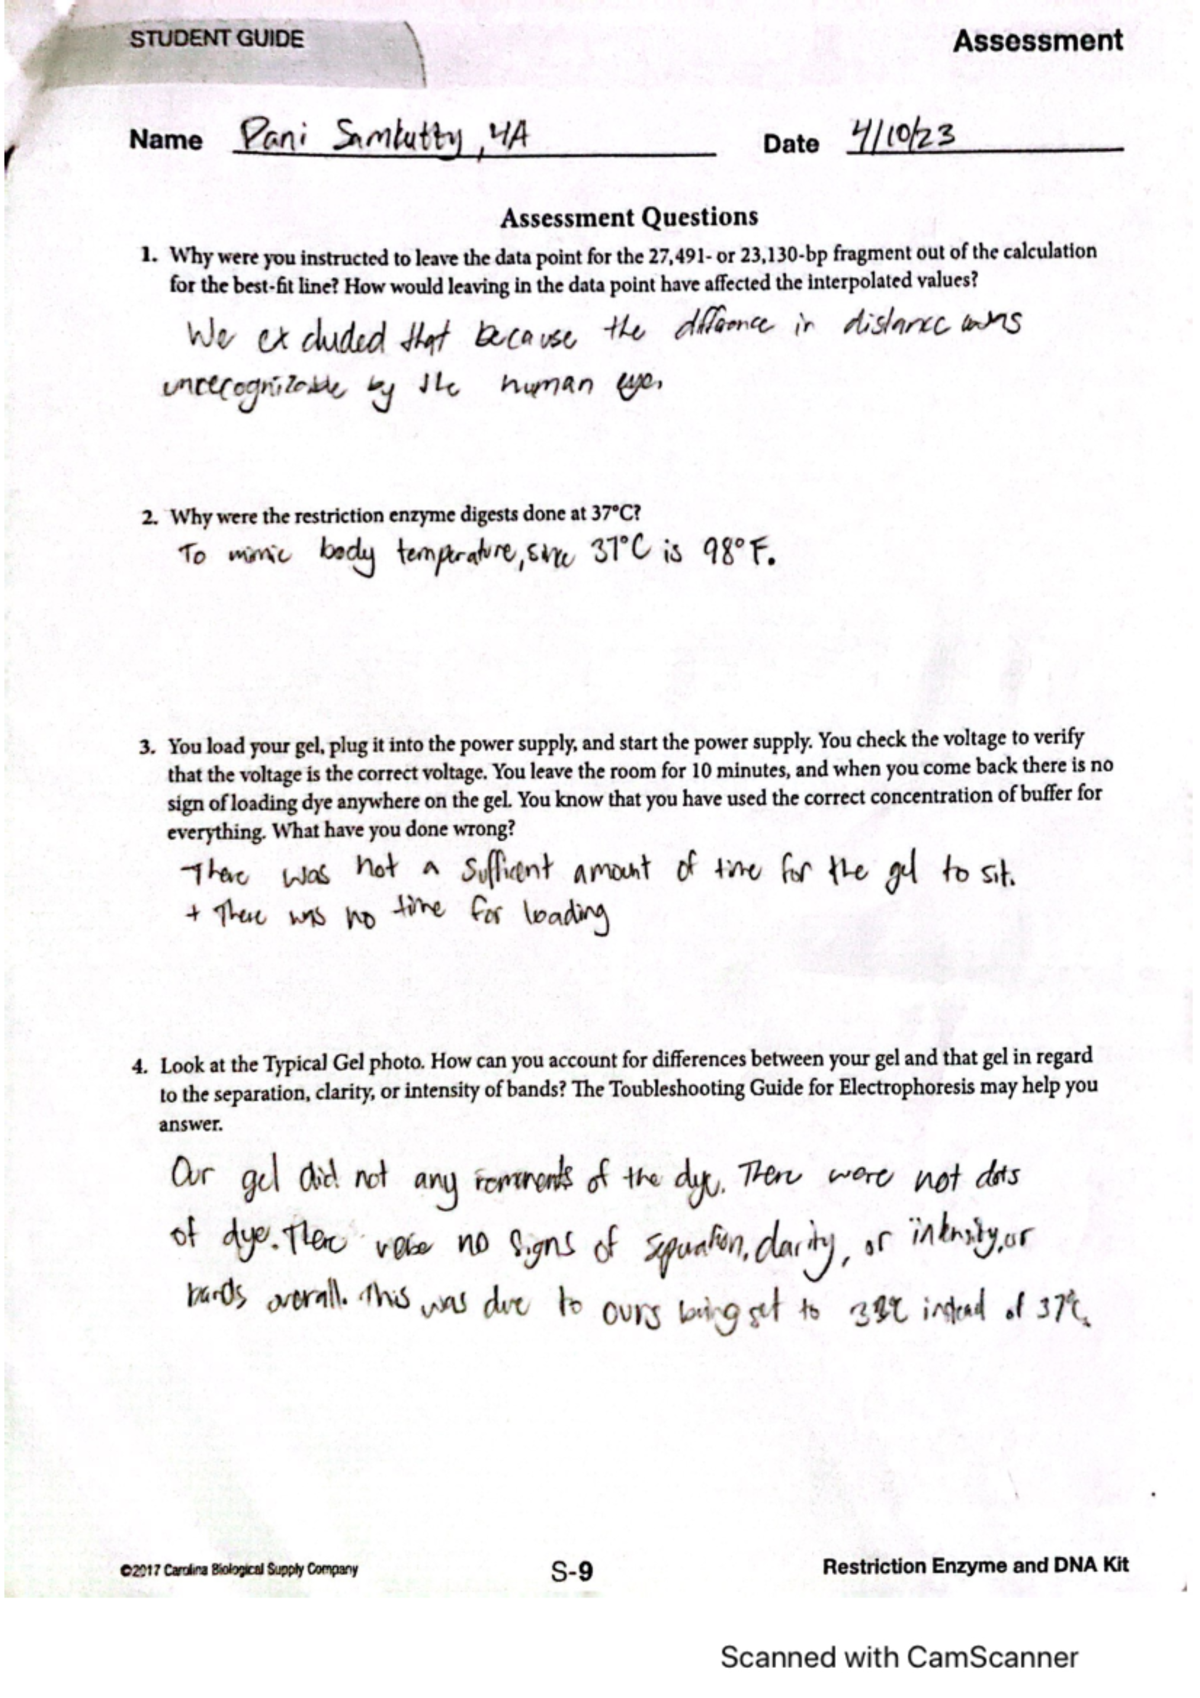 STUDENT GUIDE
Assessment
Name Dani Samkutty, 4A Date 4/10/23
Assessment Questions
1. Why were you instructed to leave the data point for the 27,491- or 23,130-bp fragment out of the calculation
for the best-fit line? How would leaving in the data point have affected the interpolated values?
We excluded that because the difference in distance was
unrecognizable by the human eye.
2. Why were the restriction enzyme digests done at 37°C?
To mimic body temperature, since 37°C is 98°F.
3. You load your gel, plug it into the power supply, and start the power supply. You check the voltage to verify
that the voltage is the correct voltage. You leave the room for 10 minutes, and when you come back there is no
sign of loading dye anywhere on the gel. You know that you have used the correct concentration of buffer for
everything. What have you done wrong?
There was not a sufficent amount of time for the gel to sit.
+ There was no time for loading
4. Look at the Typical Gel photo. How can you account for differences between your gel and that gel in regard
to the separation, clarity, or intensity of bands? The Toubleshooting Guide for Electrophoresis may help you
answer.
Our gel did not any of the dye. There were not dots
of dye. There no signs of clarity, or intensity, or
bands overall. This was due to ours being set to instead of 37°C.
©2017 Carolina Biological Supply Company
S-9
Restriction Enzyme and DNA Kit
Scanned with CamScanner